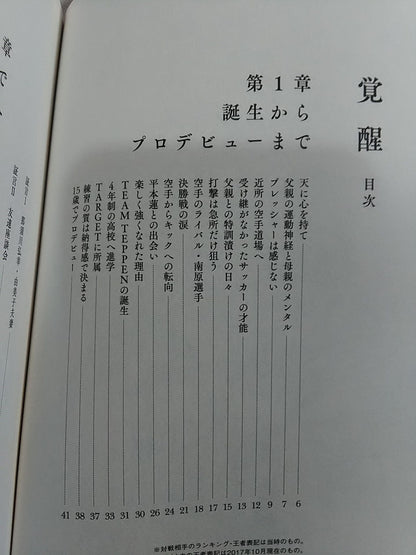 覚醒 目次
第1章
誕生から
プロデビューまで
天に心を持て 6
父親の運動神経と母親のメンタル 7
プレッシャーは感じない 9
近所の空手道場へ 12
受け継がなかったサッカーの才能 15
父親との特訓漬けの日々 17
打撃は顔だけ狙う 18
空手のライバル・南原選手 21
決勝戦の涙 22
空手からキックへの転向 24
平本蓮との出会い 26
楽しく強くなれた理由 30
TEAM TEPPENの誕生 31
4年制の高校へ進学 33
TARGETに所属 37
練習の質は納得感で決まる 38
15歳でプロデビュー 41
※対戦相手のランキング・王者表記は当時のもの。
王者表記は2017年10月現在のもの。
証言Ⅰ 那須川弘幸・由美子夫妻
証言Ⅱ 友達座談会